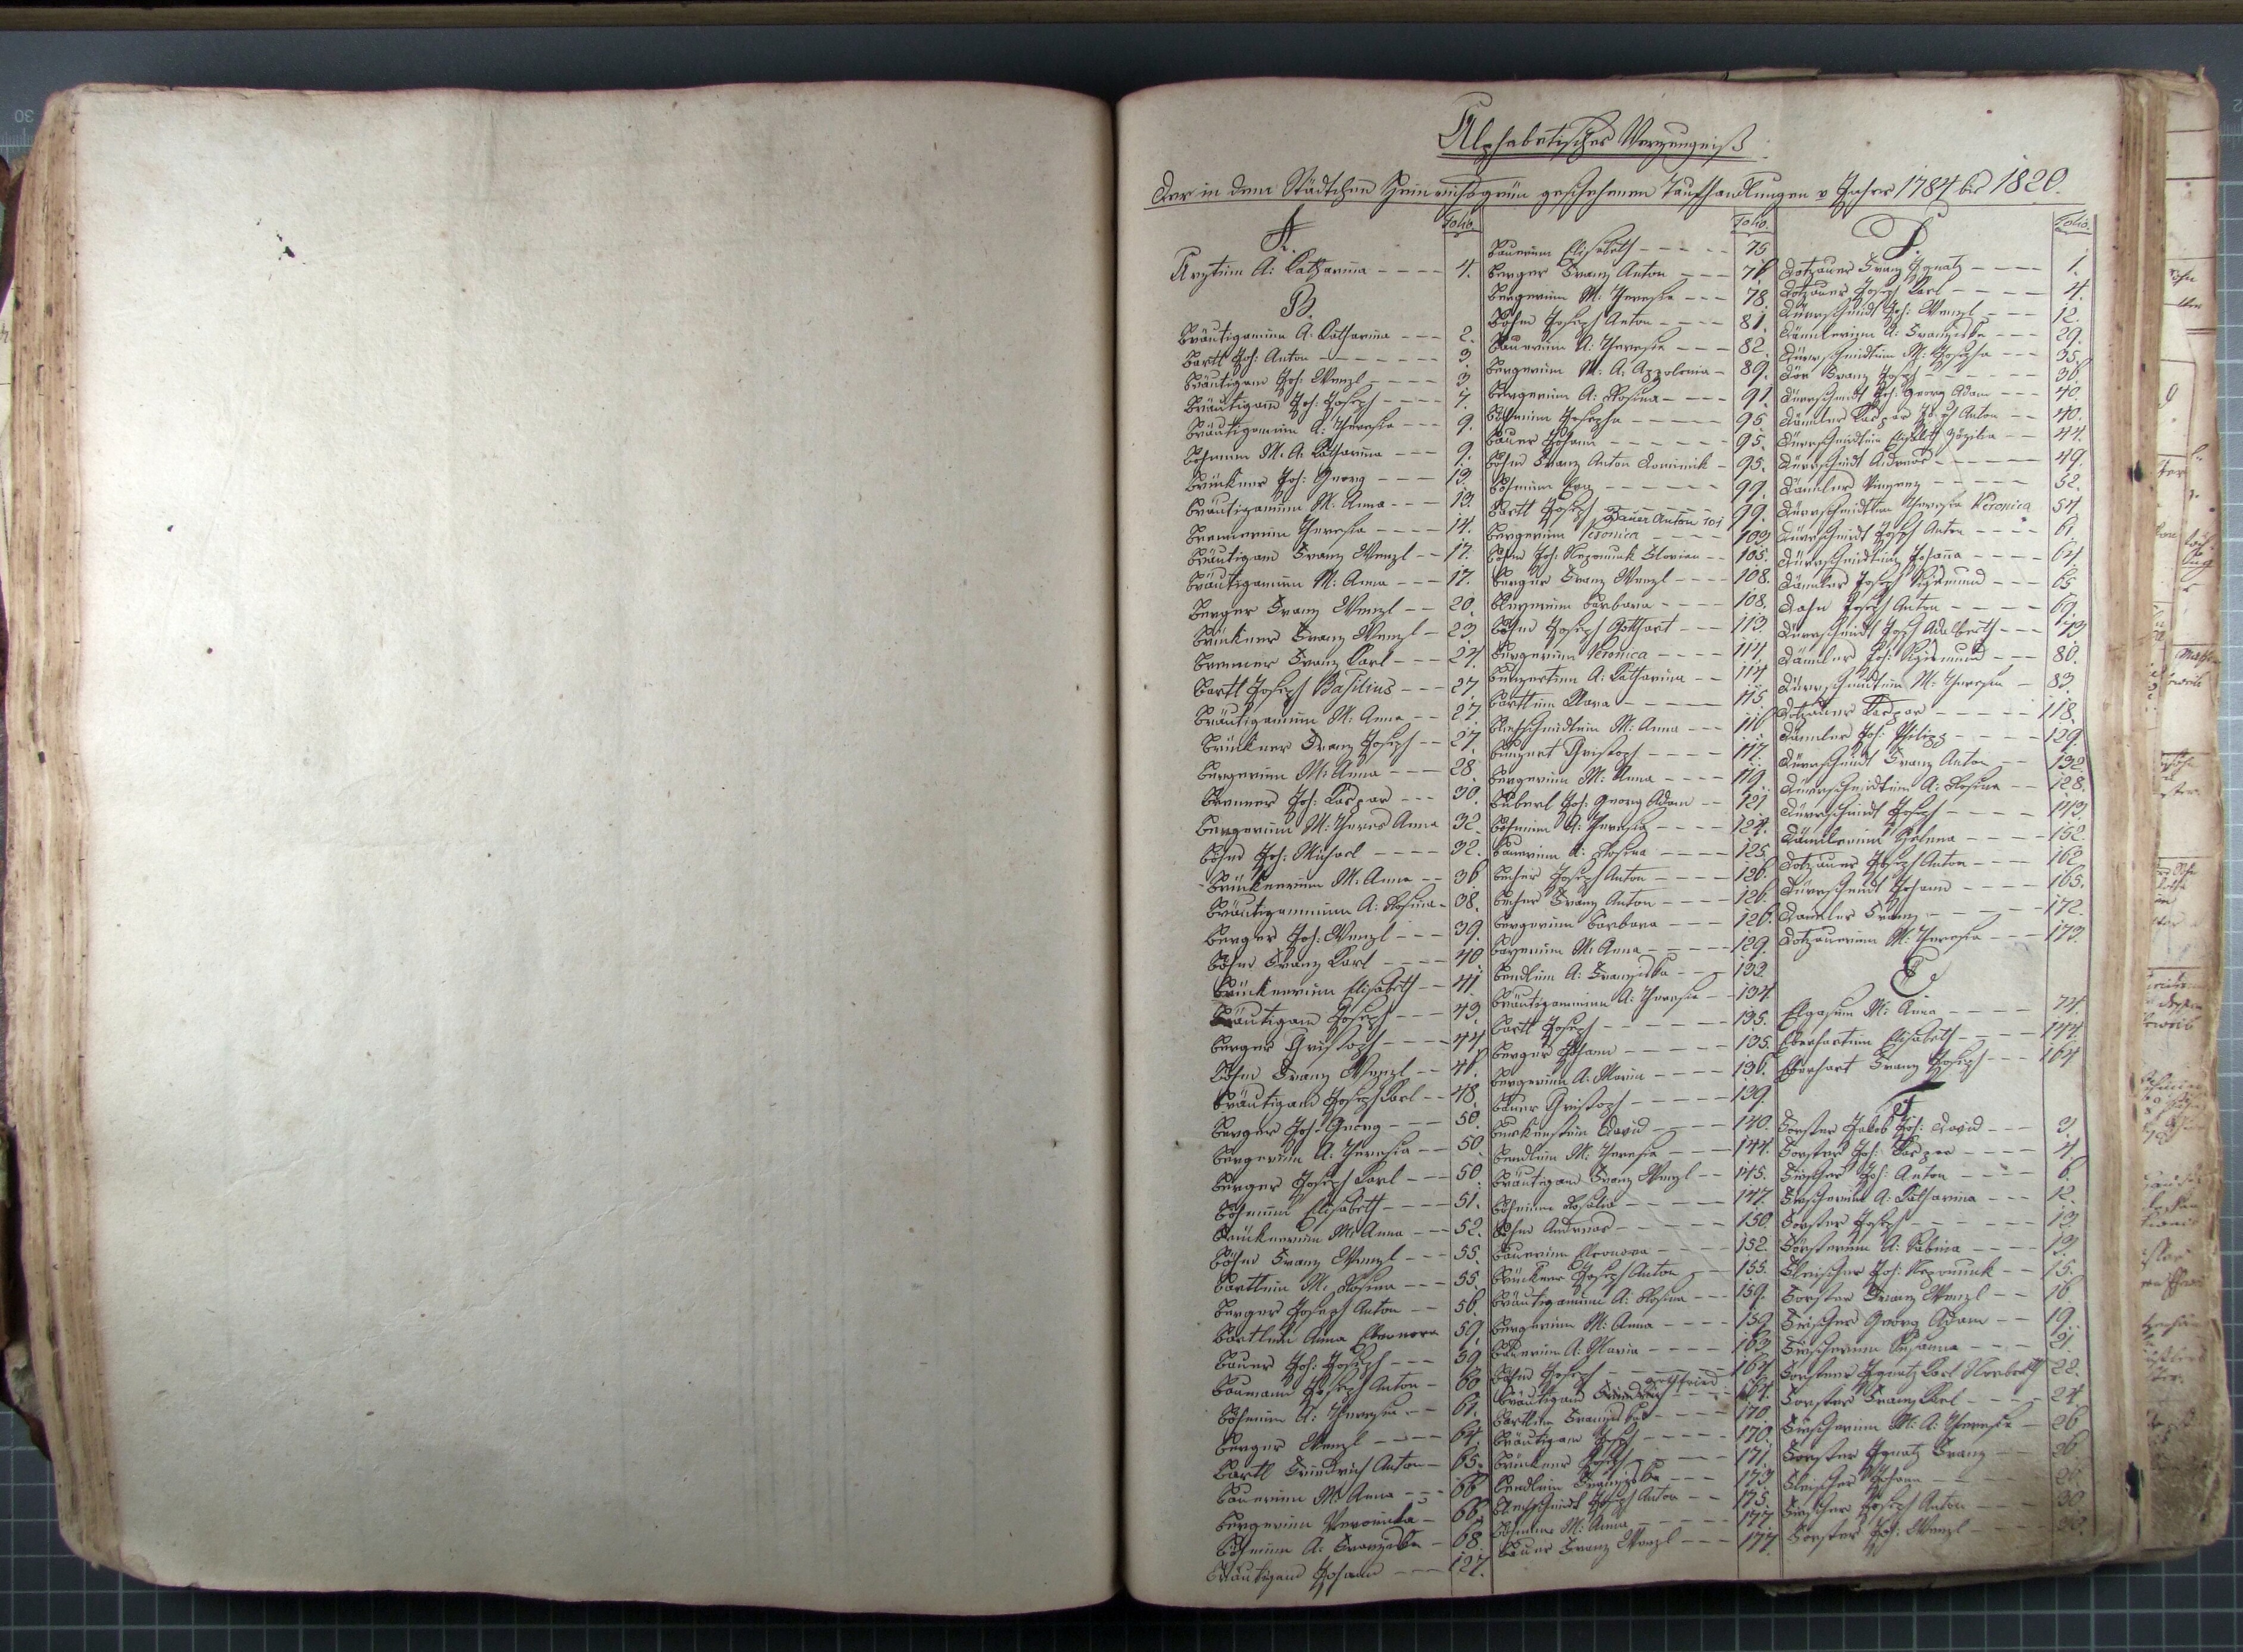 Alphabetisches Verzeugniß
der in dem Städtchen Heinrichsgrün geschehenen Taufhandlungen v Jahre 1784 bis 1820.
A. Folio.
Arztinn A: Katharina 4.
B.
Bräutigaminn A: Katharina 2.
Bartl Joh: Anton 3.
Bräutigam Joh: Wenzl 3.
Bräutigam Joh: Joseph 7.
Bräutigaminn A: Theresia 9.
Böhminn M. A. Katharina 9.
Brückner Joh: Georg 13.
Bräutigaminn M: Anna 13.
Brennerinn Theresia 14.
Bräutigam Franz Wenzl 17.
Bräutigaminn M: Anna 17.
Berger Franz Wenzl 20.
Brückner Franz Wenzl 23.
Brenner Franz Karl 24.
Bartl Joseph Basilius 27.
Bräutigaminn M: Anna 27.
Brückner Franz Joseph 27.
Bergerinn M: Anna 28.
Brenner Joh: Kaspar 30.
Bergerinn M: Theres Anna 32.
Böhm Joh: Michael 32.
Brücknerinn M: Anna 36
Bräutigaminn A: Rosina 38.
Berger Joh: Wenzl 39.
Böhm Franz Karl 40
Brücknerinn Elisabeth 41
Bräutigam Joseph 43.
Berger Christoph 44
Böhm Franz Wenzl 46.
Bräutigam Joseph Karl 48.
Berger Joh: Georg 50.
Bergerinn A: Theresia 50.
Berger Joseph Karl 50.
Böhminn Elisabeth 51.
Brücknerinn M: Anna 52.
Böhm Franz Wenzl 55.
Bartlinn M: Rosina 55.
Berger Joseph Anton 56.
Bartlinn Anna Eleonora 59.
Bauer Joh: Joseph 59
Baumann Joseph Anton 60
Böhminn A: Theresia 61.
Berger Wenzl 64.
Bartl Friedrich Anton 65.
Bauerinn M: Anna 66
Bergerinn Veronika 66.
Böhminn A: Franziska 68.
Bräutigam Johann 127.
Folio.
Bauerinn Elisabeth 75
Berger Franz Anton 76
Bergerinn M: Theresia 78.
Böhm Joseph Anton 81.
Bauerinn A: Theresia 82.
Bergerinn M: A. Appolonia 89.
Bergerinn A: Rosina 91.
Böhminn Josepha 95
Bauer Johann 95.
Böhm Franz Anton Dominik 95.
Böhminn Eva 99.
Bartl Joseph 99.
Bauer Anton 101
Bergerinn Veronica 103.
Böhm Joh: Nepomuk Florian 105.
Berger Franz Wenzl 108.
Barbara 108.
Böhm Joseph Gotthart 113.
Bergerinn Veronica 114
A: Katharina 114
Bartlinn Klara 115.
M: Anna 116
Christoph 117.
Bergerinn M: Anna 119.
Joh: Georg Adam 121
Böhminn A: Theresia 124.
Bauerinn A: Rosina 125.
Becher Joseph Anton 126.
Becher Franz Anton 126.
Bergerinn Barbara 126.
Bayerinn M: Anna 129.
Bendlinn A: Franziska 133.
Bräutigaminn A: Theresia 134.
Bartl Joseph 135.
Berger Johann 135.
Bergerinn A: Maria 136.
Bauer Christoph 139.
Berkenstein David 140.
Bendlinn M: Theresia 144.
Bräutigam Franz Wenzl 145.
Böhminn Rosalia 147.
Böhm Andreas 150.
Bauerinn Eleonora 152.
Brückner Joseph Anton 155.
Bräutigaminn A: Rosina 159.
Bergerinn M: Anna 159.
Bauerinn A: Maria 163
Böhm Joseph 164
Bräutigam Friedrich Gottfried 164.
Bartlinn Franziska 170
Bräutigam Joseph 170.
Brückner Joseph 171
Bendlinn Franziska 173
Joseph Anton 175.
Böhminn M: Anna 177
Bauer Franz Wenzl 177.
D. Folio.
Dotzauer Franz Ignatz 1.
Dotzauer Joseph Karl 4.
Dürrschmidt Joh: Wenzl 12.
Dämlerinn A: Franziska 29.
Dürrschmidtinn M: Josepha 35.
Dör Franz Joseph 36.
Dürrschmidt Joh: Georg Adam 40.
Dämler Kaspar Joseph Anton 40.
Dürrschmidtinn Elisabeth Zözilia 44.
Dürrschmidt Andreas 49.
Dämler Vinzenz 52.
Dürrschmidtinn Theresia Veronica 54.
Dürrschmidt Joseph Anton 61
Dürrschmidtinn Johanna 64.
Dämler Joseph Sigismund 65
Dahn Joseph Anton 69.
Dürrschmidt Joseph Adalberth 73
Dämler Joh: Sigismund 80.
Dürrschmidtinn M: Theresia 83.
Dotzauer Kaspar 118.
Dämler Joh: Philipp 129.
Dürrschmidt Franz Anton 132.
Dürrschmidtinn A: Rosina 128.
Dürrschmidt Joseph 143.
Dämlerinn Helena 152.
Dotzauer Joseph Anton 162
Dürrschmidt Johann 165.
Dämler Franz 172.
Dotzauerinn M: Theresia 173.
E
Elgasinn M: Anna 74.
Eberhartinn Elisabeth 144.
Eberhart Franz Joseph 164
F
Forster Jakob Joh: David 3.
Forster Joh: Kaspar 4.
Fischer Joh: Anton 6.
Fischerinn A: Katharina 12.
Forster Joseph 13.
Forsterinn A: Sabina 13.
Fleischer Joh: Nepomuk 15.
Forster Franz Wenzl 16
Fischer Georg Adam 19.
Fischerinn Susanna 21.
Forster Ignatz Karl Norbert 22.
Forster Franz Karl 24.
Fischerinn M: A: Theresia 26
Forster Ignatz Franz 26
Fleischer Johann
Fischer Joseph Anton 30
Forster Joh: Wenzl